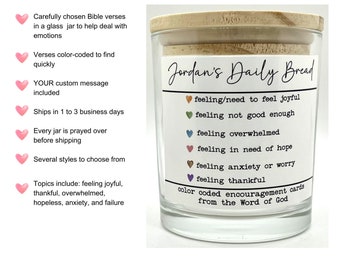 Carefully chosen Bible verses
in a glass  jar to help deal with
emotions
Verses color-coded to find
quickly
YOUR custom message
included
Ships in 1 to 3 business days
Every jar is prayed over
before shipping
Several styles to choose from
Topics include: feeling joyful,
thankful, overwhelmed,
hopeless, anxiety, and failure
Jordan's Daily Bread
feeling/need to feel joyful
feeling not good enough
feeling overwhelmed
feeling in need of hope
feeling anxiety or worry
feeling thankful
color coded encouragement cards
from the Word of God